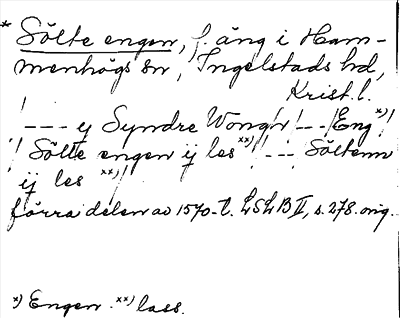 * Sölte engen, f. äng i Ham-
menhögs sn, Ingelstads hd,
Krist. l.
! --- y Syndre Wongn! --- !Eng *)!
! Sölte engen ij les **)! --- Söltenn
ij les **)!
förra delen av 1570-t. LSLB II, s. 278. orig.
*) Engen. **) lass.